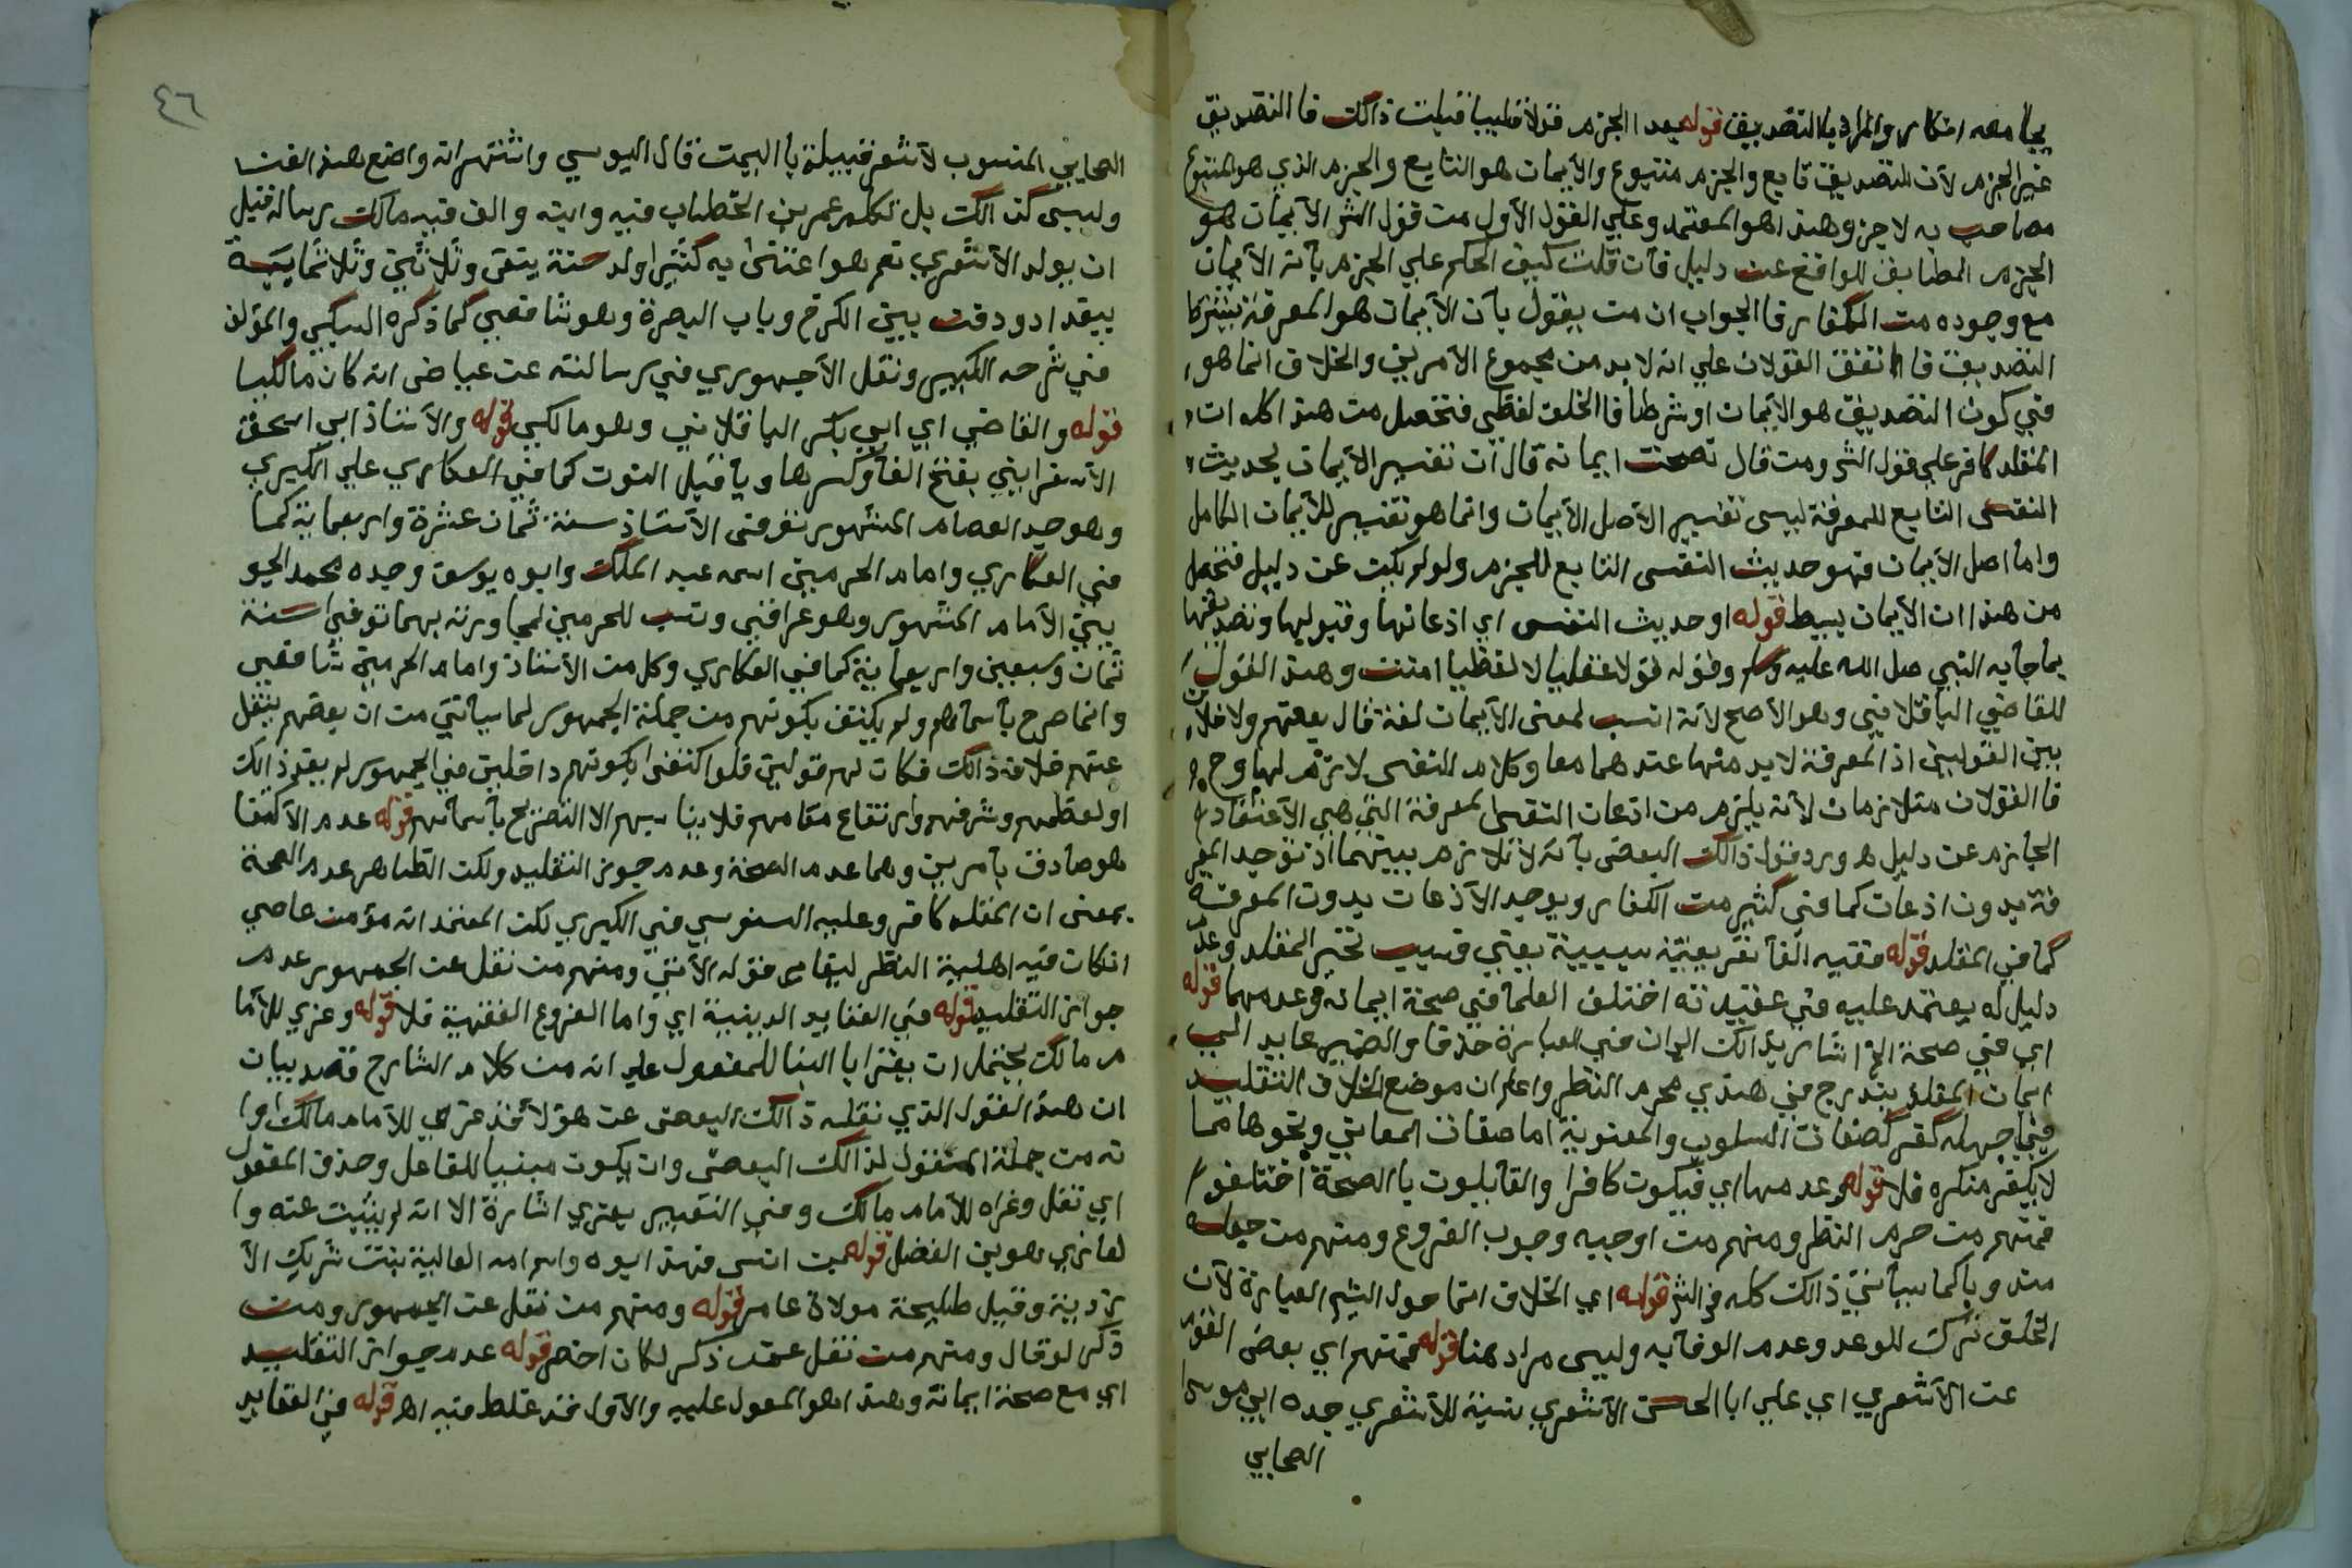 يجامعه انكار والمراد بالتصديق قوله بعد الجزم قولا قلبيا فيلت ذالك فا التصديق
غير الجزم لأن التصديق تابع والجزم متبوع والأيمان هو التابع والجزم الذي هو المتبوع
مصاحب به لا جز وهذا هو المعتمد وعلي القول الأول من قول الش الأيمان هو
الجزم المطابق للواقع عن دليل فأن قلت كيف الحكم علي الجزم بأنه الأيمان
مع وجوده من الكفار فا الجواب ان من يقول بأن الأيمان هو المعرفة يشترط
التصديق فا اتفق القولان علي انه لا بد من مجموع الأمرين والخلاف انما هو
في كون التصديق هو الأيمان او شرطا فا الخلف لفظي فتحصل من هذا كله ان
المقلد كافر علي قول الش ومن قال بصحت ايمانه قال ان تفسير الأيمان بحديث
النفس التابع للمعرفة ليس تفسير الأصل الأيمان وانما هو تفسير للأيمان الكامل
واما اصل الأيمان فهو حديث النفس التابع للجزم ولو لم يكن عن دليل فتحصل
من هذا ان الأيمان بسيط قوله او حديث النفس اي اذعانها وقبولها وتصديقها
بما جا به النبي صل الله عليه وسلم وقوله قولا عقليا لا لفظيا امنت وهذا القول
للقاضي الباقلاني وهو الأصح لأنه انسب لمعنى الأيمان لغة قال بعضهم ولا خلاف
بين القولين اذ المعرفة لا بد منها عندهما معا وكلام النفس لازم لها وح
فا القولان متلازمان لأنه يلزم من اذعان النفس المعرفة التي هي الأعتقاد
الجازم عن دليل هـ ورد قول ذالك البعض بأنه لا تلازم بينهما اذ توجد المعر
فة بدون اذعان كما في كثير من الكفار ويوجد الأذعان بدون المعرفة
كما في المقلد قوله ففيه الفا تفريعية سببية يعني فسبب تحير المقلد وعدم
دليل له يعتمد عليه في عقيدته اختلف العلما في صحة ايمانه وعدمها قوله
اي في صحة الخ اشار بذالك الى ان في العبارة حذفا والضمير عايد الي
ايمان المقلد يندرج في هذي محرم النظر واعلم ان موضع الخلاف التقليد
فيما جهله كفر كصفات السلوب والمعنوية اما صفات المعاني ونحوها مما
لا يكفر منكره فلا قوله وعدمها اي فيكون كافرا والقائلون با الصحة اختلفوا
فمنهم من حرم النظر ومنهم من اوجبه وجوب الفروع ومنهم من جعله
مندوبا كما سيأتي ذالك كله في الش قوله اي الخلاف انما حول الش العبارة لأن
الخلف ترك للوعد وعدم الوفا به وليس مراد هنا قوله فمنهم اي بعض القوم
عن الأشعري اي علي ابا الحسن الأشعري نسبة للأشعري جده ابي موسى
الصحابي
٤٦
الصحابي المنسوب لأشعر قبيلة با اليمن قال اليوسي واشتهر انه واضع هذا الفن
وليس كذالك بل تكلم عمر بن الخطاب فيه وابنه والف فيه مالك رسالة قبل
ان يولد الأشعري نعم هو اعتنى به كثيرا ولد سنة
ببغداد ودفن بين الكرخ وباب البصرة وهو شافعي كما ذكره السبكي والمؤلف
في شرحه الكبير ونقل الأجهوري في رسالته عن عياض انه كان مالكيا
قوله والقاضي اي ابي بكر الباقلاني وهو مالكي قوله والأستاذ ابي اسحق
الأسفرايني بفتح الفا وكسرها وبا قبل النون كما في العكاري علي الكبري
وهو جد العصام المشهور توفي الأستاذ سنة ثمان عشرة واربعماية كما
في العكاري وامام الحرمين اسمه عبد الملك وابوه يوسف وجده محمد الجو
يني الأمام المشهور وهو عراقي ونسب للحرمين لمجاورته بهما توفي سنة
ثمان وسبعين واربعماية كما في العكاري وكل من الأستاذ وامام الحرمين شافعي
وانما صرح بأسمائهم ولم يكتف بكونهم من جملة الجمهور لما سيأتي من ان بعضهم ينقل
عنهم خلاف ذالك فكان لهم قولين فلو اكتفى بكونهم داخلين في الجمهور لم يفد ذالك
او لعظمهم وشرفهم وارتفاع مقامهم فلا يناسبهم الا التصريح بأسمائهم قوله عدم الأكتفا
هو صادق بأمرين وهما عدم الصحة وعدم جواز التقليد ولكن الظاهر عدم الصحة
بمعنى ان المقلد كافر وعليه السنوسي في الكبري لكن المعتمد انه مؤمن عاصي
ان كان فيه اهلية النظر ليغاير قوله الأتي ومنهم من نقل عن الجمهور عدم
جواز التقليد قوله في العقايد الدينية اي واما الفروع الفقهية فلا قوله وعزي للأما
م مالك يحتمل ان يقرا با البنا للمفعول علي انه من كلام الشارح قصد بيان
ان هذا القول الذي نقله ذالك البعض عن هؤلا قد عزي للأمام مالك وا
نه من جملة المنقول لذالك البعض وان يكون مبنيا للفاعل وحذف المفعول
اي نقل وعزاه للأمام مالك وفي التعبير بعزي اشارة الا انه لم يثبت عنه وا
لعازي هو بن الفضل قوله بن انس فهذا ابوه واسم امه العالية بنت شريك الأ
زدية وقيل طليحة مولاة عامر قوله ومنهم من نقل عن الجمهور ومن
ذكر لو قال ومنهم من نقل عمن ذكر لكان اخصر قوله عدم جواز التقليد
اي مع صحة ايمانه وهذا هو المعول عليه والأول قد غلط فيه اهـ قوله في العقايد